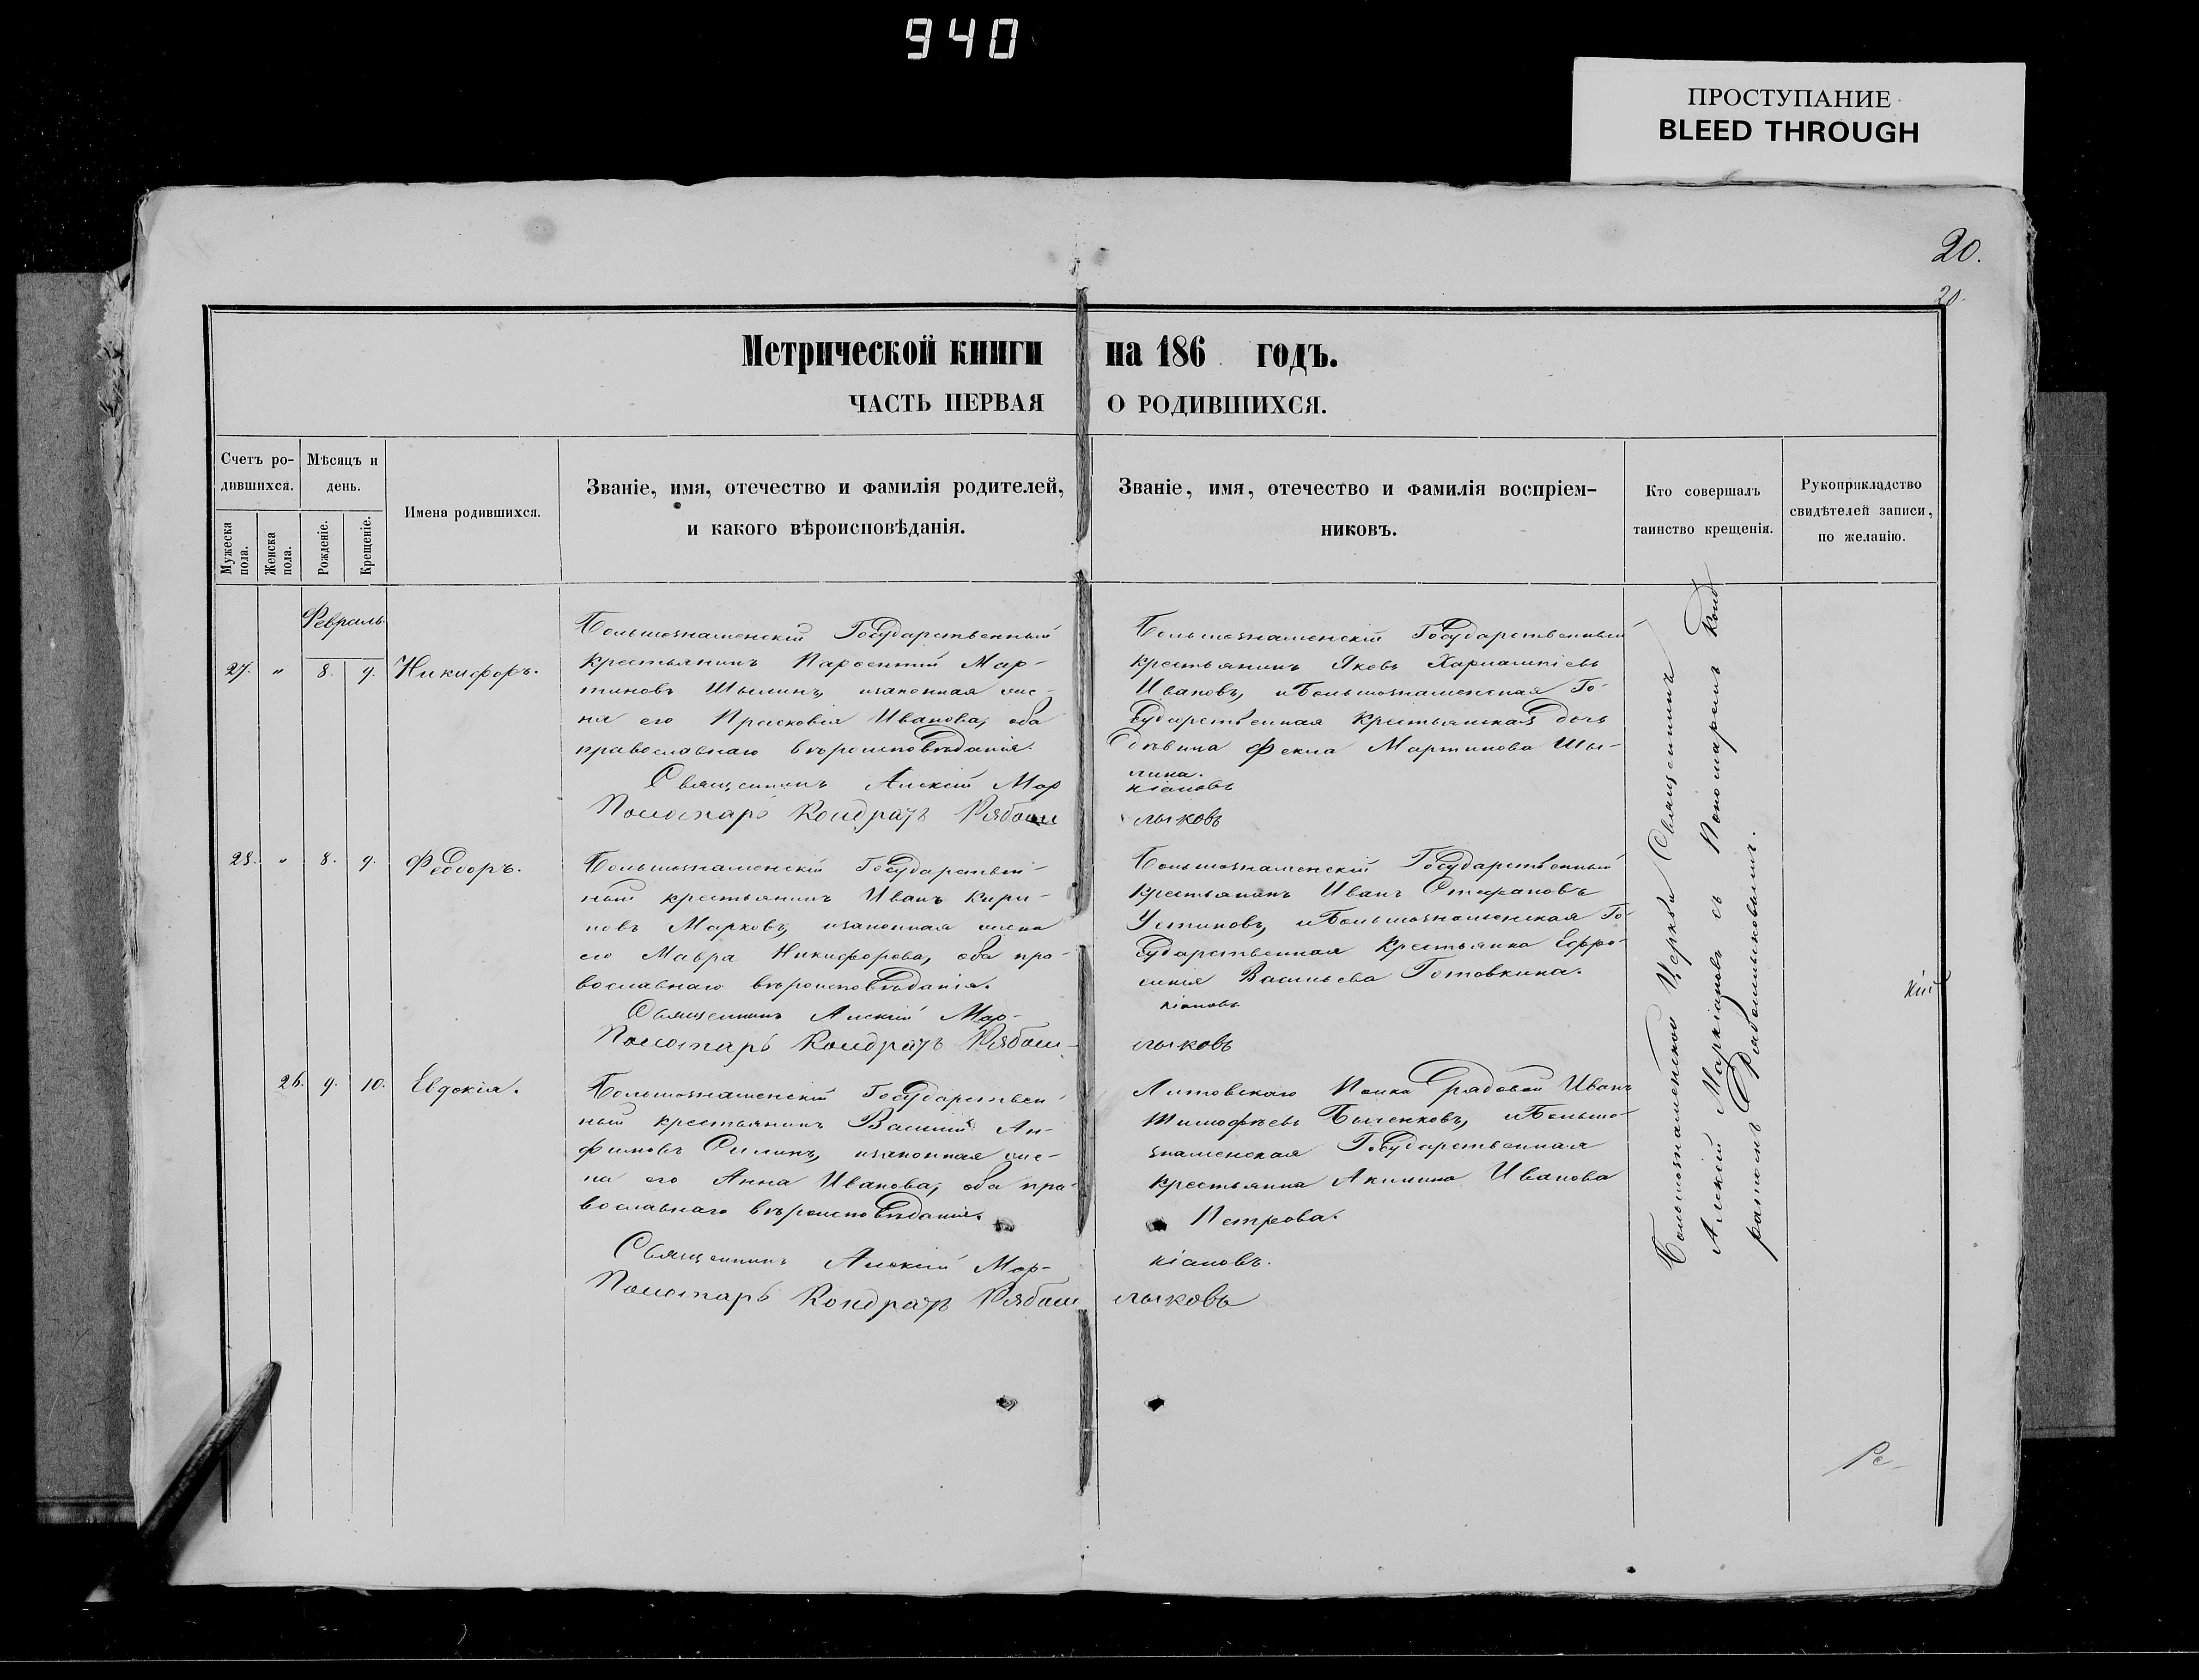 940
ПРОСТУПАНИЕ
BLEED THROUGH
20.
20.
Метрической книги на 186 годъ.
ЧАСТЬ ПЕРВАЯ О РОДИВШИХСЯ.
Счетъ ро-
дившихся.
Мѣсяцъ и
день.
Мужеска
пола.
Женска
пола.
Рожденіе.
Крещеніе.
Имена родившихся.
Званіе, имя, отечество и фамилія родителей,
и какого вѣроисповѣданія.
Званіе, имя, отечество и фамилія воспріем-
никовъ.
Кто совершалъ
таинство крещенія.
Рукоприкладство
свидѣтелей записи,
по желанію.
Февраль
27. " 8. 9. Никифоръ.
Большознаменскій Государственный
крестьянинъ Парфентій Мар-
тиновъ Шылинъ, изаконная же-
на его Прасковья Иванова, оба
православнаго вѣроисповѣданія.
Священникъ Алексій Мар
Пономарь Кондратъ Рябош
Большознаменскій Государственный
крестьянинъ Яковъ Харлампіевъ
Ивановъ, и Большознаменская Го-
сударственная крестьянская дочь
дѣвица Фекла Мартинова Шы-
лина.
кіановъ
лыковъ
28. " 8. 9. Феодоръ.
Большознаменскій Государствен-
ный крестьянинъ Иванъ Кири-
ловъ Марковъ, изаконная жена
его Мавра Никифорова, оба пра-
вославнаго вѣроисповѣданія.
Священникъ Алексій Мар-
Пономарь Кондратъ Рябош-
Большознаменскій Государственный
крестьянинъ Иванъ Стефановъ
Устиновъ, и Большознаменская Го-
сударственная крестьянка Ефро-
синія Васильева Готовкина.
кіановъ
лыковъ
26. 9. 10. Евдокія.
Большознаменскій Государствен-
ный крестьянинъ Василій Ан-
фимовъ Силинъ, изаконная же-
на его Анна Иванова, оба пра-
вославнаго вѣроисповѣданія.
Священникъ Алексій Мар-
Пономарь Кондратъ Рябош
Литовскаго Полка рядовой Иванъ
Тимофѣевъ Быченковъ, и Больше-
знаменская Государственная
крестьянка Акилина Иванова
Петрова.
кіановъ.
лыковъ
Большознаменской Церкви Священникъ
Алексій Маркіановъ съ Пономаремъ Конд
ратомъ Рябошлыковымъ.
кій
Ре-